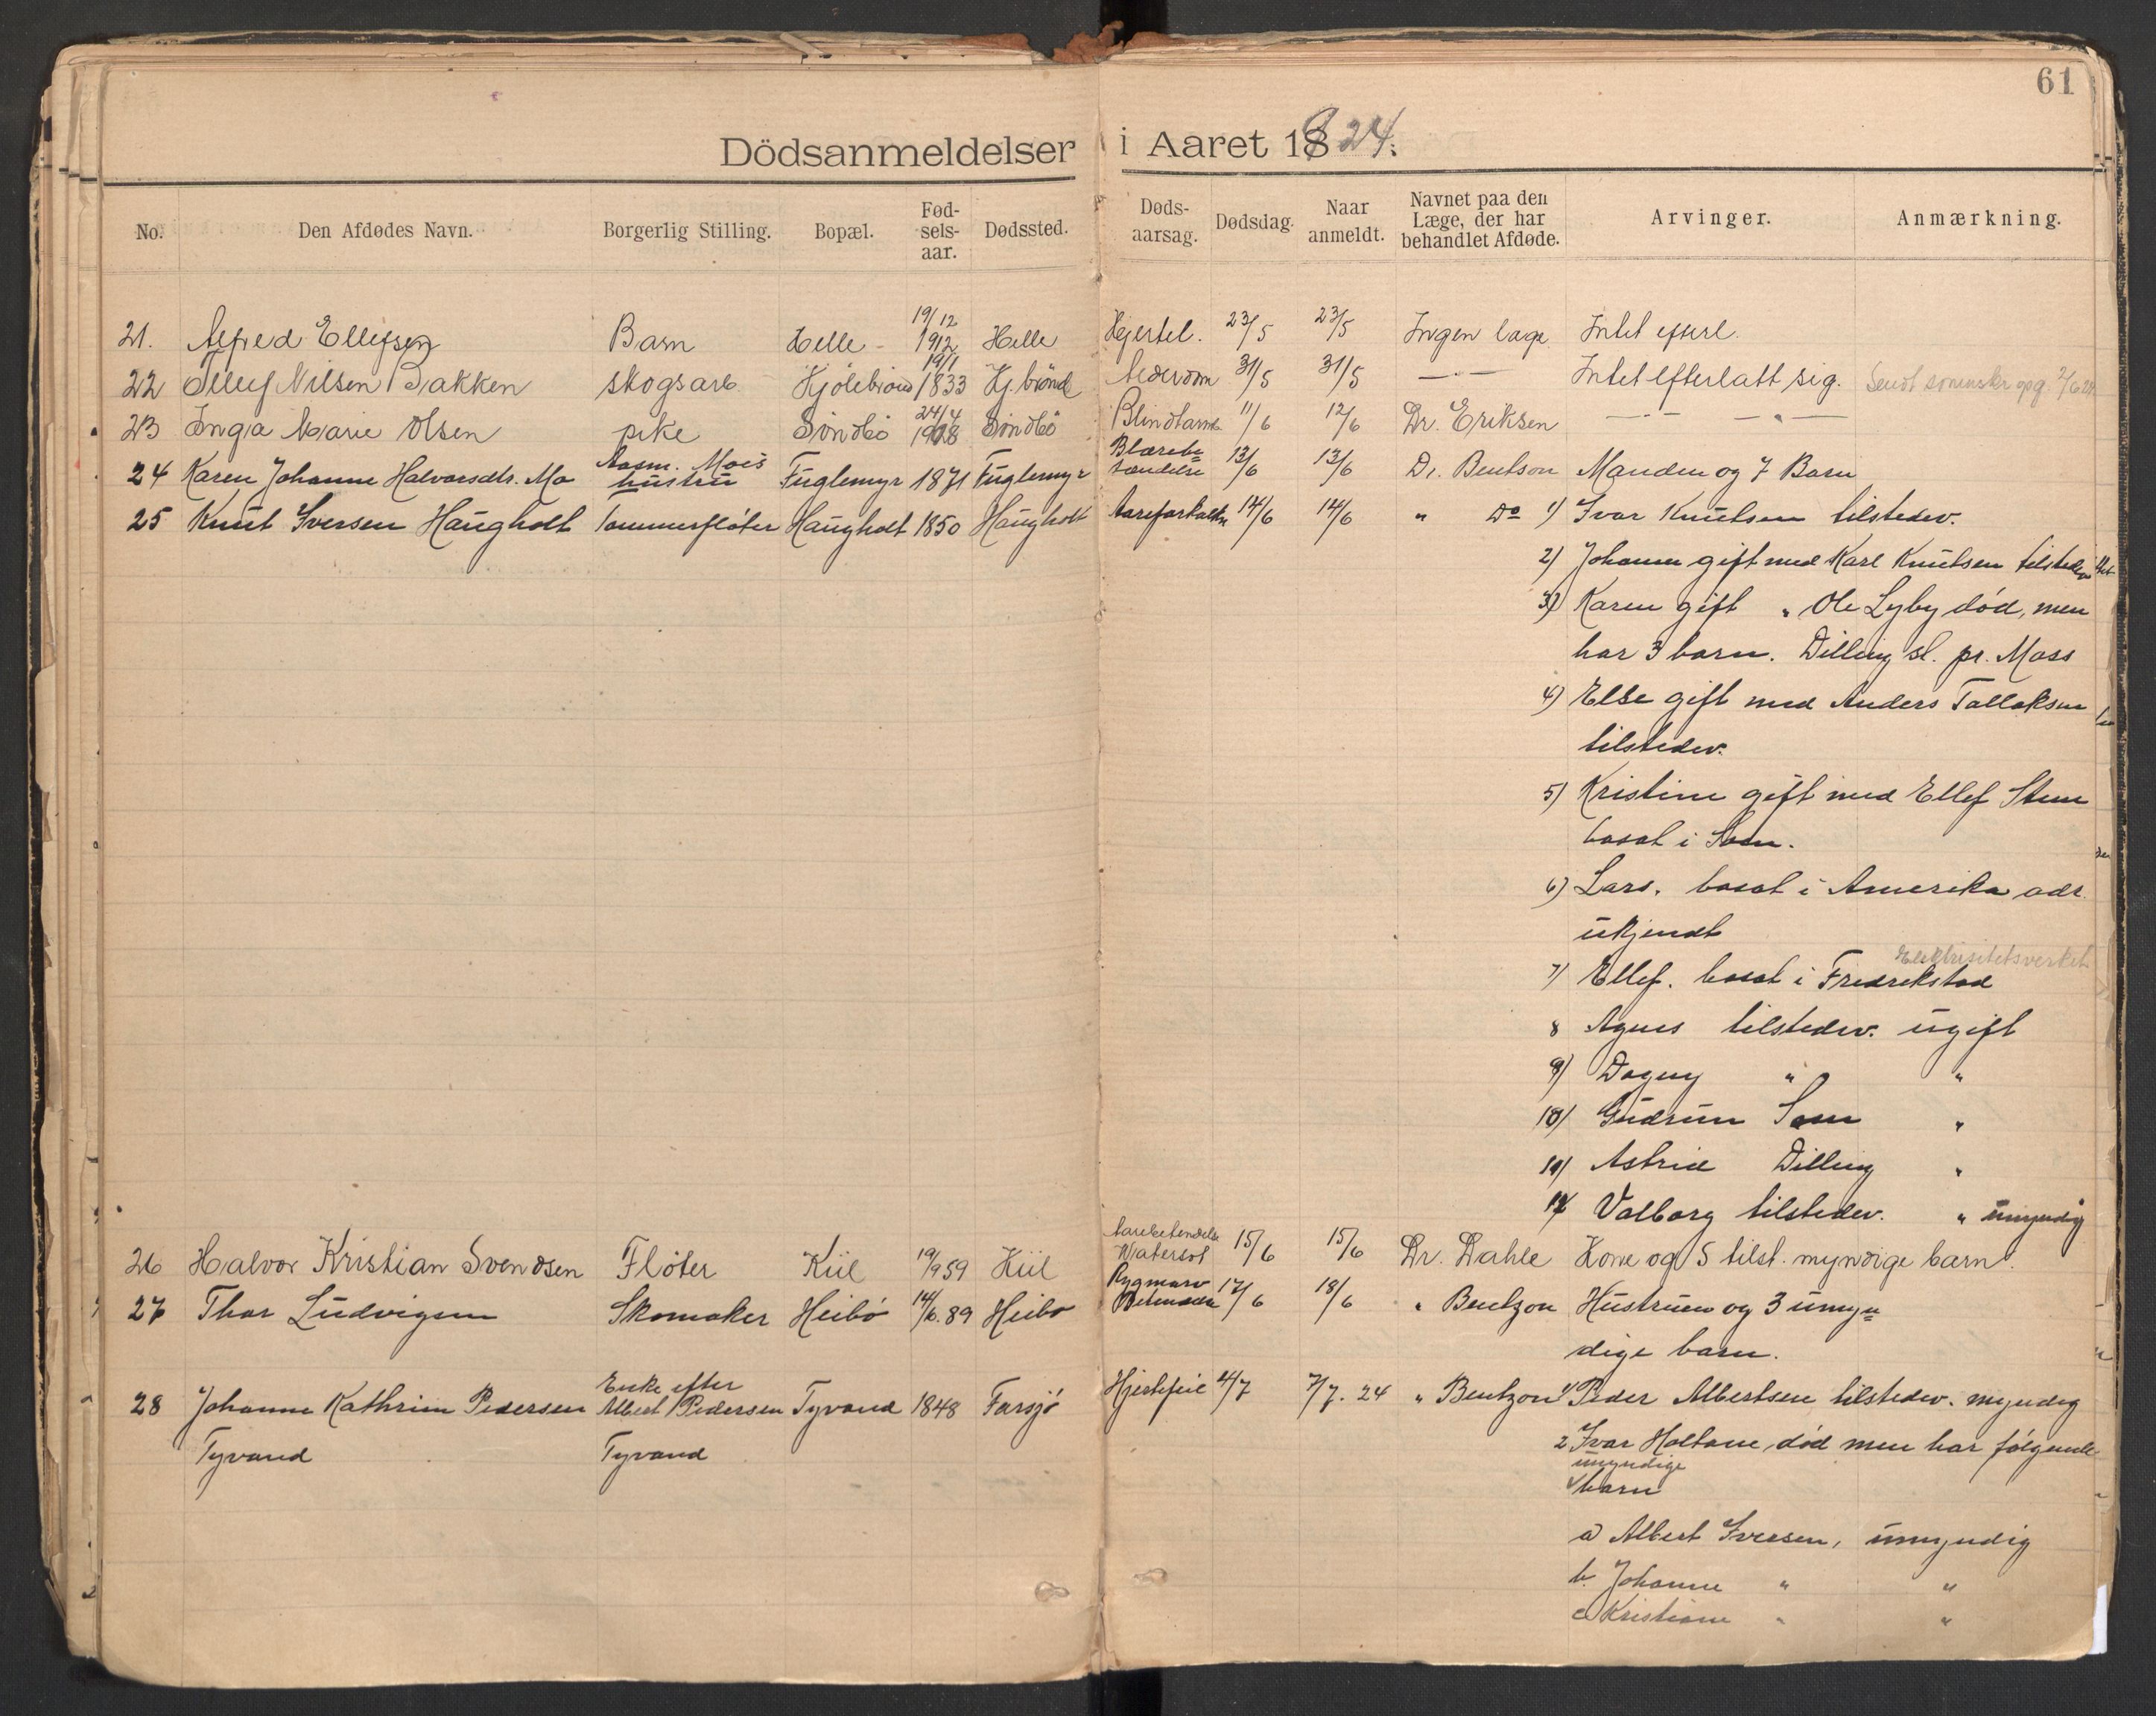 61
Dödsanmeldelser i Aaret 1924.
No. Den Afdødes Navn. Borgerlig Stilling. Bopæl. Fødselsaar. Dødssted. Dødsaarsag. Dødsdag. Naar anmeldt. Navnet paa den Læge, der har behandlet Afdøde. Arvinger. Anmærkning.
21. Alfred Ellefsen Barn Helle - 19/12 1912 Helle Hjertel. 23/5 23/5 Ingen læge Intet efterl.
22 Tellef Nilsen Bakken skogsarb. 19/1 1833 Kj.brönd Alderdom 31/5 31/5 —"— Intet efterlatt sig.
23 Inga Marie Olsen pike Söndbö 24/4 1908 Söndbö Blindtarmb. 11/6 12/6 Dr. Eriksen —"— —"—
24 Karen Johanne Halvorsdtr. Mo Aasm. Mois hustru Fuglemyr 1871 Fuglemyr Blærebetændelse 13/6 13/6 Dr. Bentson Manden og 7 Barn
25 Knut Iversen Haugholt Tømmerfløter Haugholt 1850 Haugholt Aareforkalkn 14/6 14/6 " Do 1) Ivar Knutsen tilstedev.
2) Johanne gift med Karl Knutsen tilstedev
3) Karen gift " Ole Lyby död, men
har 3 barn. Dilling st. pr. Moss
4) Else gift med Anders Tallaksen
tilstedev.
5) Kristine gift med Ellef Steen
bosat i Son.
6) Lars. bosat i Amerika adr.
ukjendt
Elektrisitetsverket
7) Ellef. bosat i Fredrikstad
8 Agnes tilstedev. ugift
9) Dagny " "
10) Gudrun Son "
11) Astrid Dilling "
12 Valborg tilstedev. " umyndig
26 Halvor Kristian Svendsen Fløter Kiil 19/9 59 Kiil Aarebetændelse Vatersot 15/6 15/6 Dr. Dahle Kone og 5 tilst. myndige barn.
27 Thor Ludvigsen Skomaker Heibö 14/6. 89 Heibö Rygmarv Betændelse 17/6 18/6 " Bentzon Hustruen og 3 umyn=
dige barn.
28 Johanne Kathrine Pedersen Enke efter Albert Pedersen Tyvand 1848 Farsjö Hjertefeil 4/7 7/7. 24 " Bentzon 1) Peder Albertsen tilstedev. myndig
Tyvand Tyvand 2 Ivar Holtane, död men har følgende
umyndige
barn
a) Albert Iversen, umyndig
b. Johanne " "
c Kristiane " "